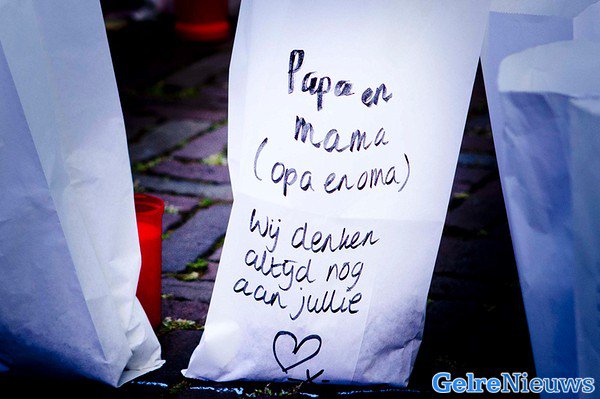 Papa en
mama
(opa en oma)
Wij denken
altijd nog
aan jullie
x
GelreNieuws